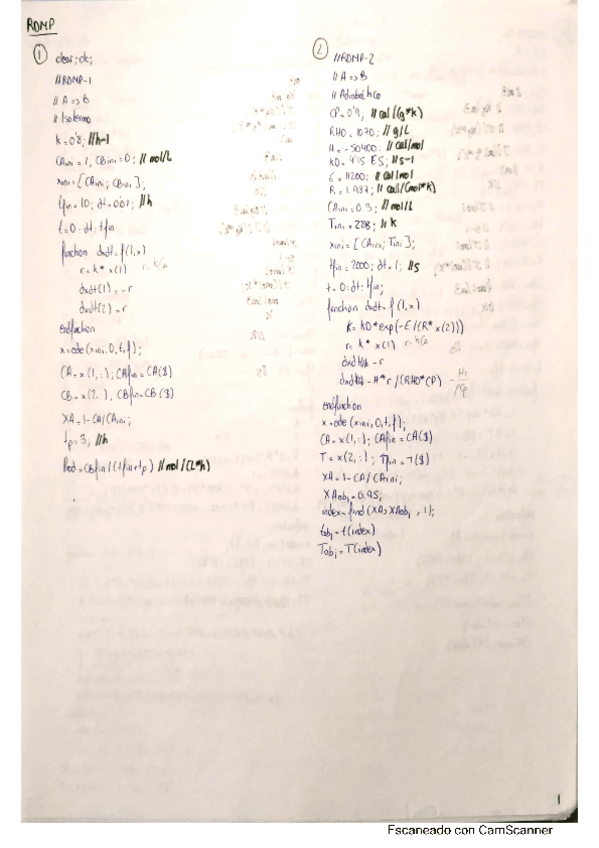 RDMP
1
clear; clc;
//RDMP-1
// A => B
// Isotermo
k = 0'8; //h-1
CAini = 1, CBini = 0; // mol/L
xini = [CAini; CBini];
tfin = 10; dt = 0'01; //h
t = 0: dt: tfin
function dxdt = f(t,x)
r = k * x(1) r = kCA
dxdt(1) = -r
dxdt(2) = r
endfunction
x = ode(xini, 0, t, f);
CA = x(1,:); CAfin = CA($)
CB = x(2,:), CBfin = CB($)
XA = 1 - CA/CAini;
tp = 3; //h
Prod = CBfin/(tfin+tp) // mol/(L*h)
2
//RDMP-2
// A => B
// Adiabático
CP = 0'9; // cal/(g*K)
RHO = 1070; // g/L
H = -50400: // cal/mol
E = 11200: // cal/mol
R = 1.987; // cal/(mol*K)
CAini = 0.3; // mol/L
Tini = 288; // K
xini = [CAini; Tini];
tfin = 2000; dt = 1; //s
t = 0: dt: tfin;
function dxdt = f(t,x)
K = k0*exp(-E/(R*x(2)))
r = k * x(1) r = kCA
-r
-H*r/(RHO*CP)
endfunction
x = ode(xini, 0, t, f);
CA = x(1,:); CAfin = CA($)
T = x(2,:); Tfin = T($)
XA = 1 - CA/CAini;
XAobj = 0.95;
index = find(XA>XAobj, 1);
tobj = t(index)
Tobj = T(index)
1
Escaneado con CamScanner